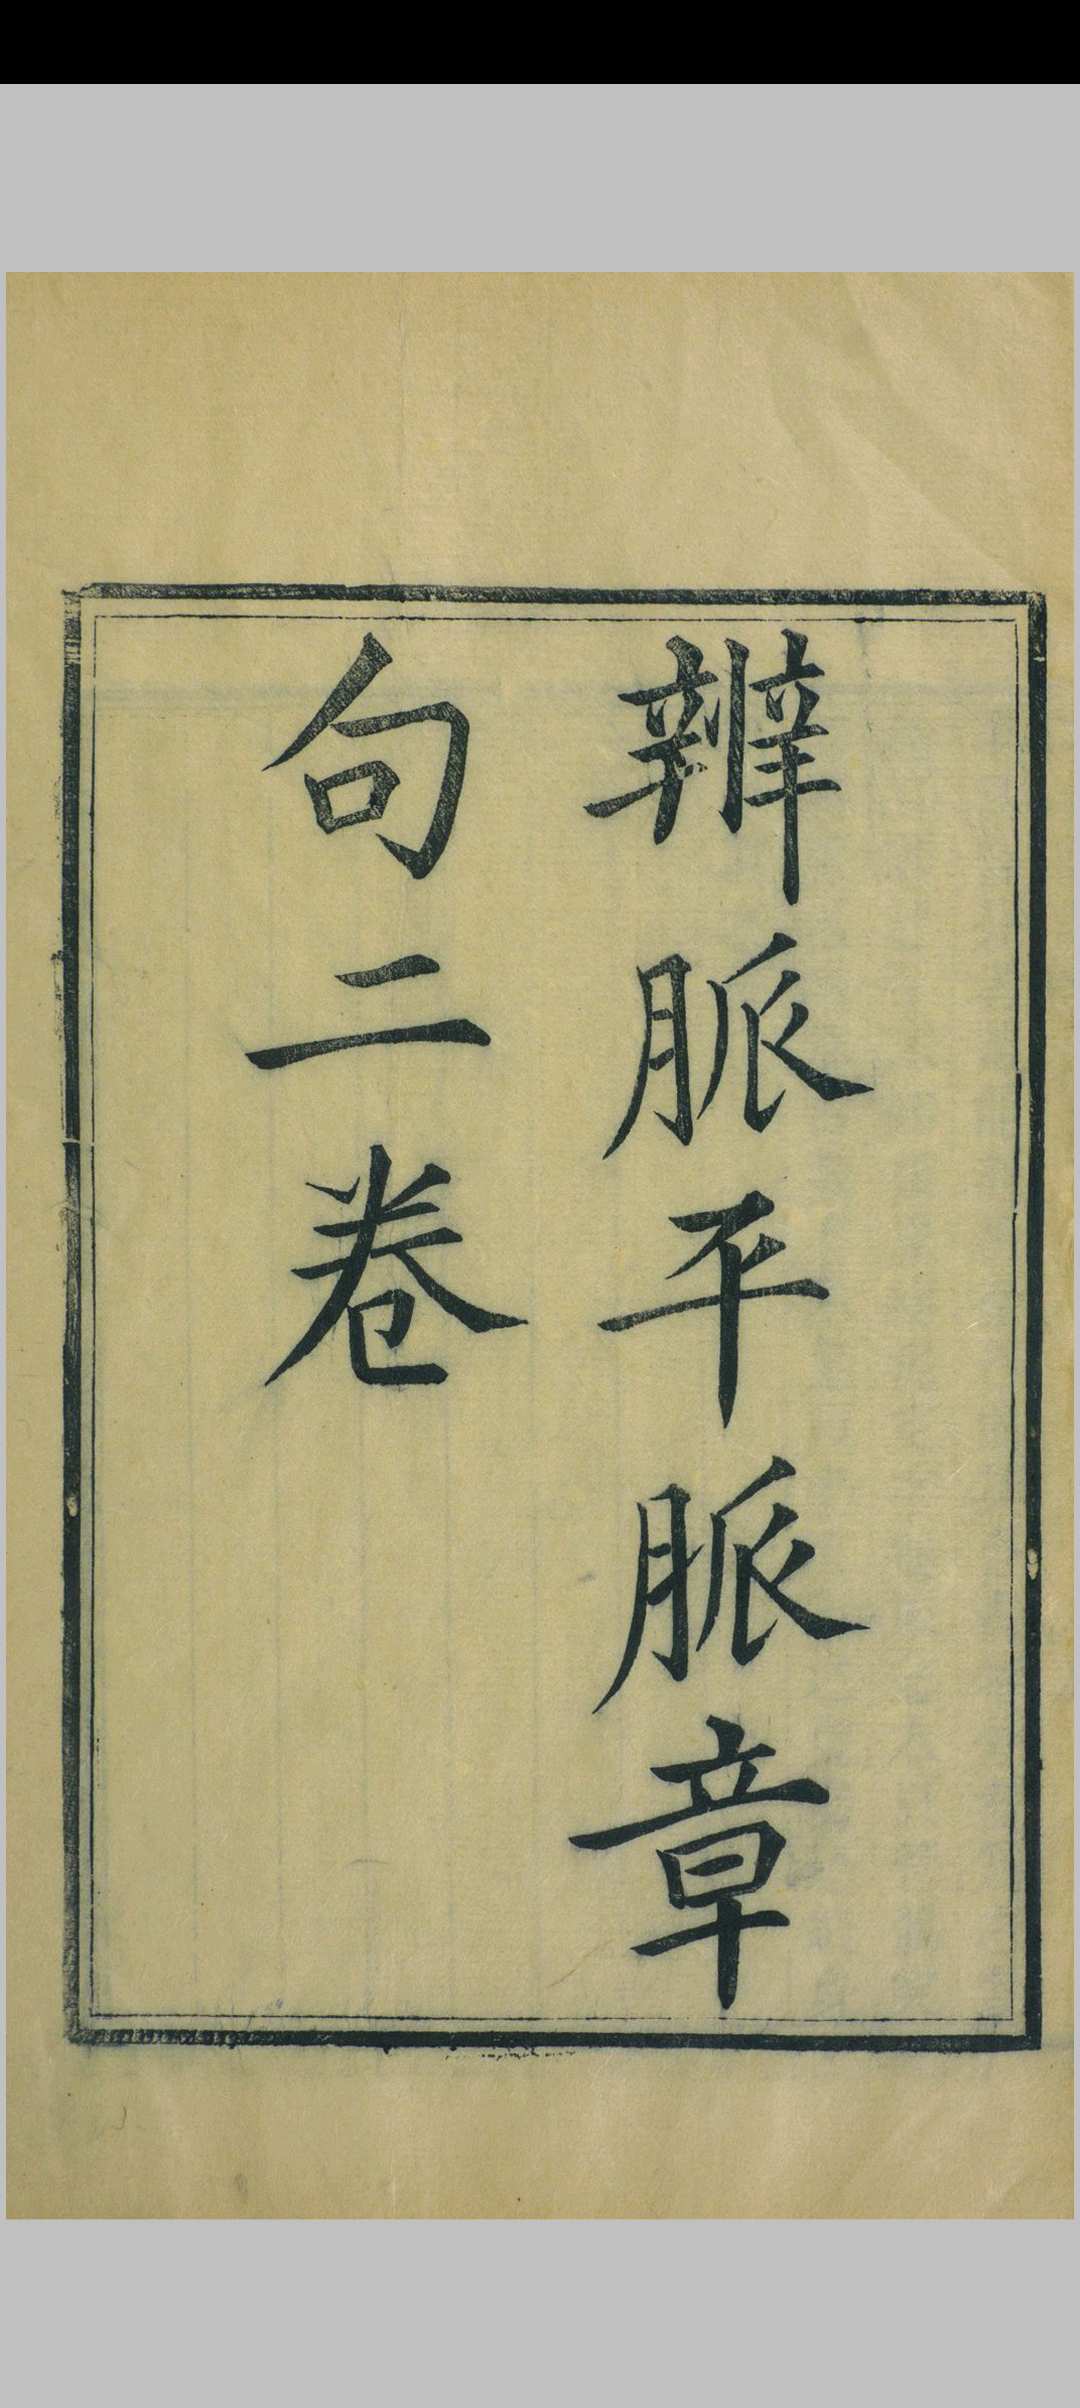 辨脈平脈章
句二卷